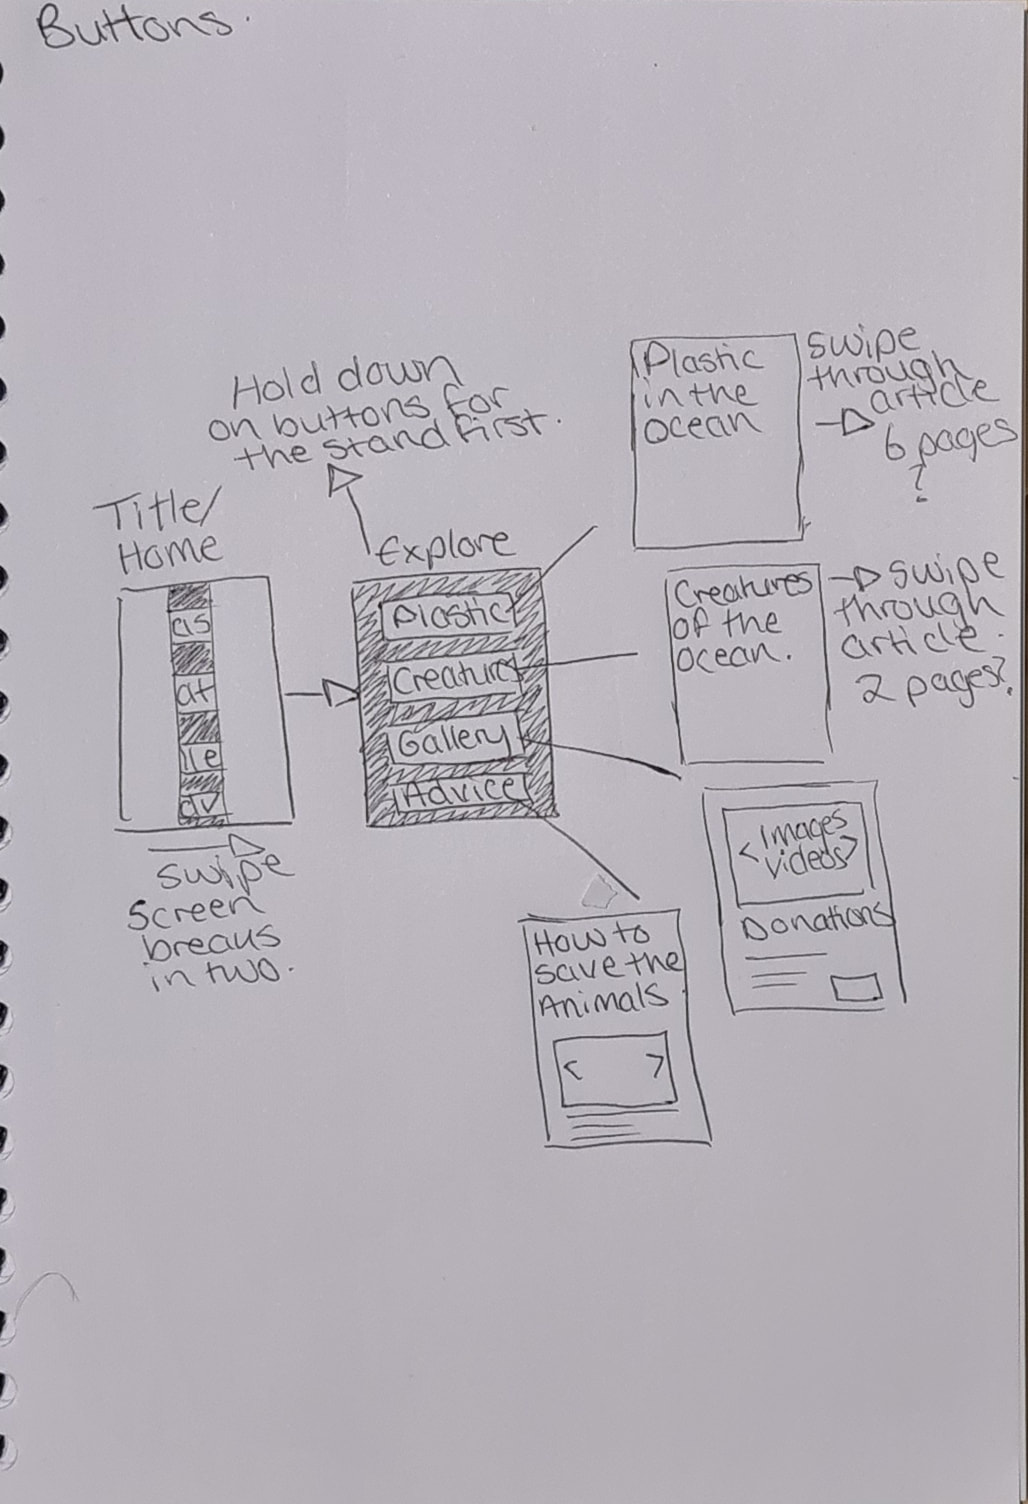 Buttons.
Hold down
on buttons for
the stand first.
Title/
Home
as
at
lle
dv
swipe
screen
breaks
in two.
Explore
Plastic
Creatures
Gallery
Advice
Plastic
in the
ocean
swipe
through
article
6 pages
?
Creatures
of the
ocean.
swipe
through
article.
2 pages?
<Images
videos>
Donations
How to
save the
Animals
< >